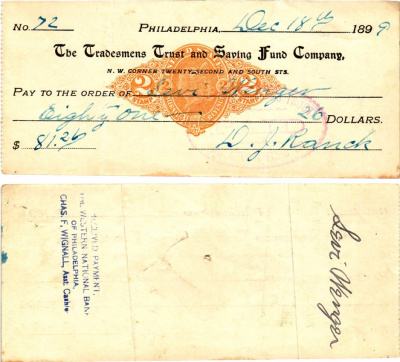 No. 72 Philadelphia, Dec 18th 1899
The Tradesmens Trust and Saving Fund Company,
N. W. CORNER TWENTY-SECOND AND SOUTH STS.
PAY TO THE ORDER OF Levi Wenger
2 2
Eighty one 26 DOLLARS.
$ 81.26 D. J. Ranck
RECEIVED PAYMENT
THE WESTERN NATIONAL BANK
OF PHILADELPHIA.
CHAS. F. WIGNALL, Asst Cashier
Levi Wenger